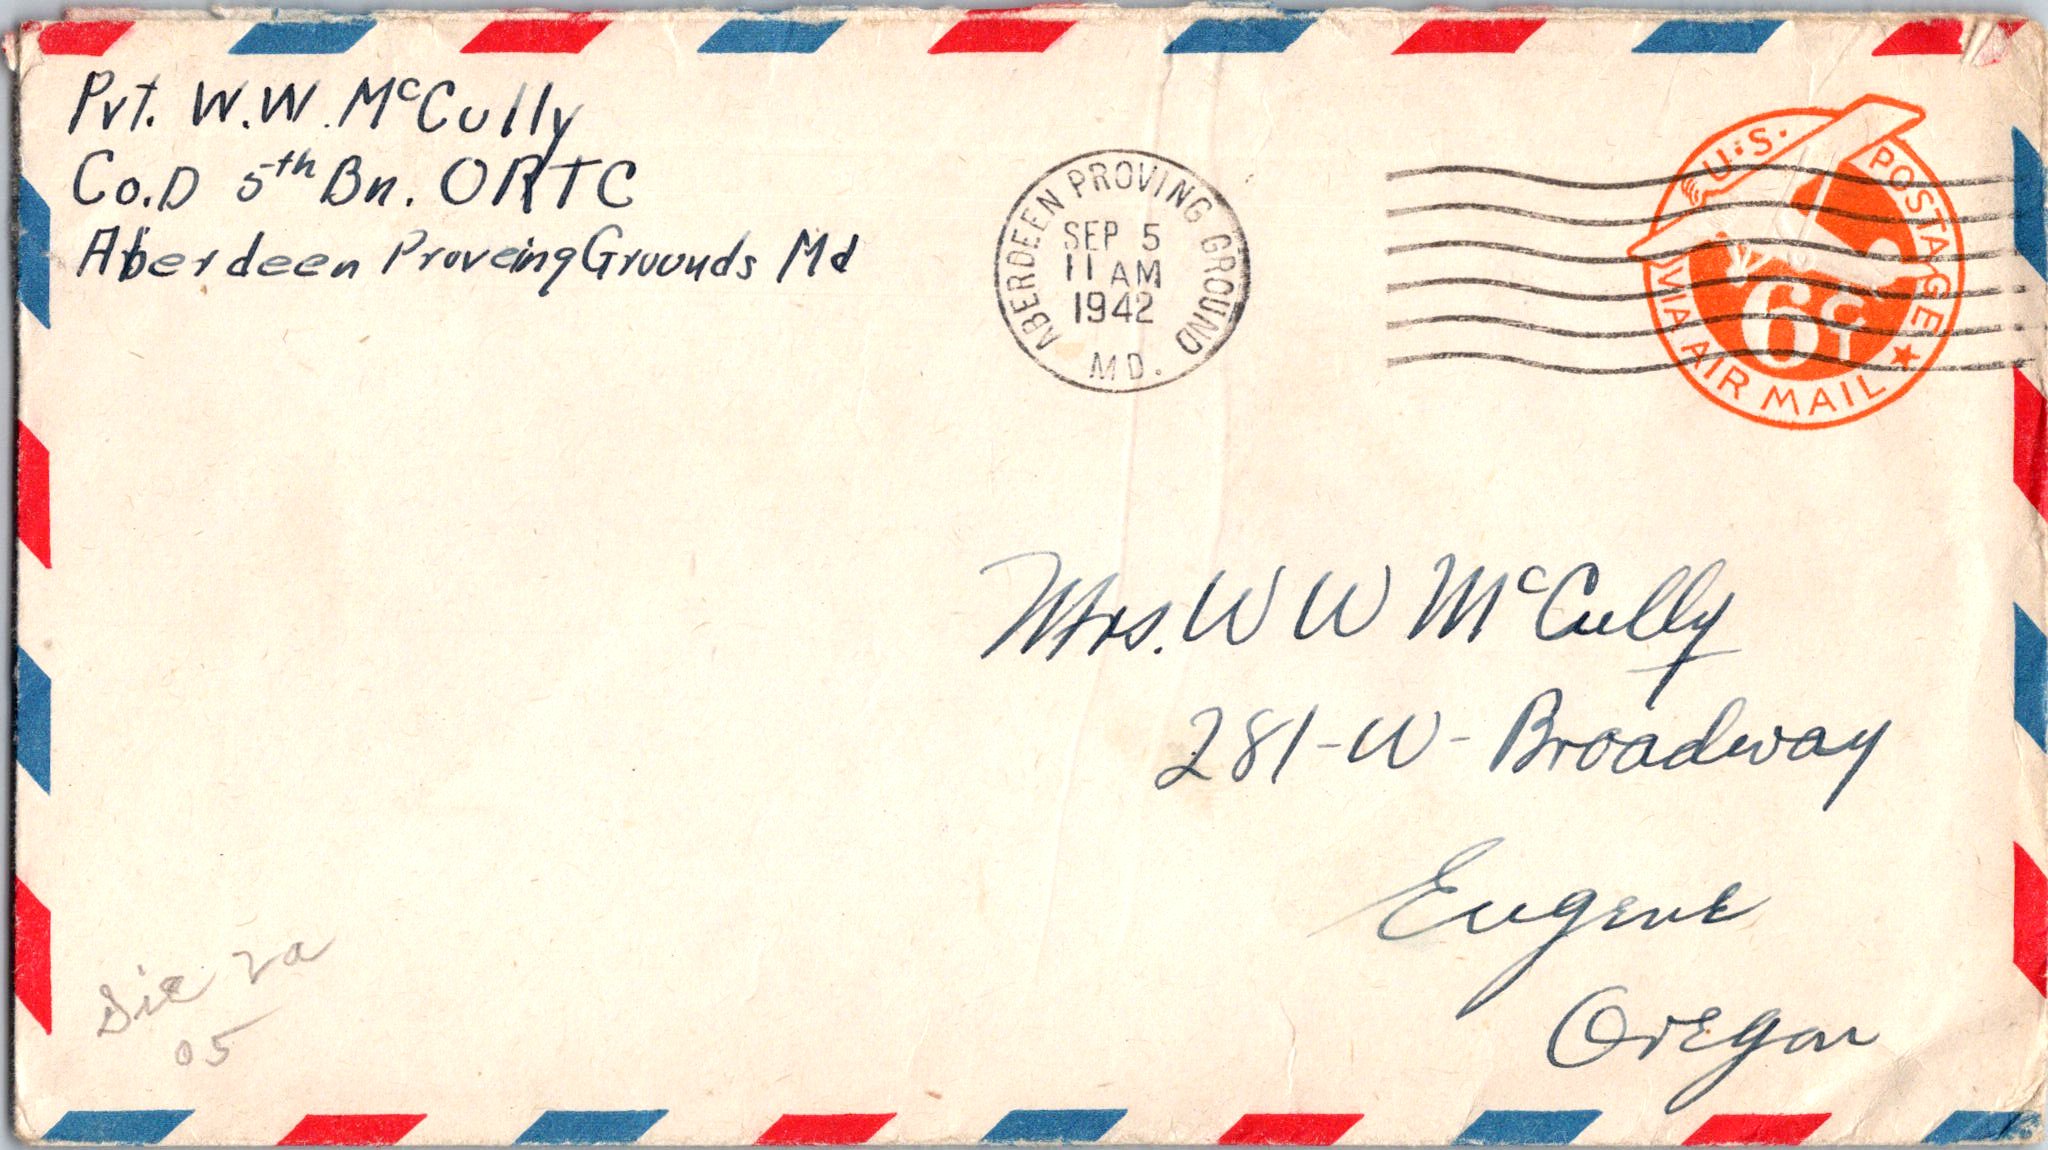 Pvt. W.W. McCully
Co.D 5th Bn. ORTC
Aberdeen Proveing Grouunds Md
ABERDEEN PROVING GROUND
SEP 5
11 AM
1942
MD.
U.S. POSTAGE
6¢
VIA AIR MAIL
Mrs. W W McCully
281-W-Broadway
Eugene
Oregon
05